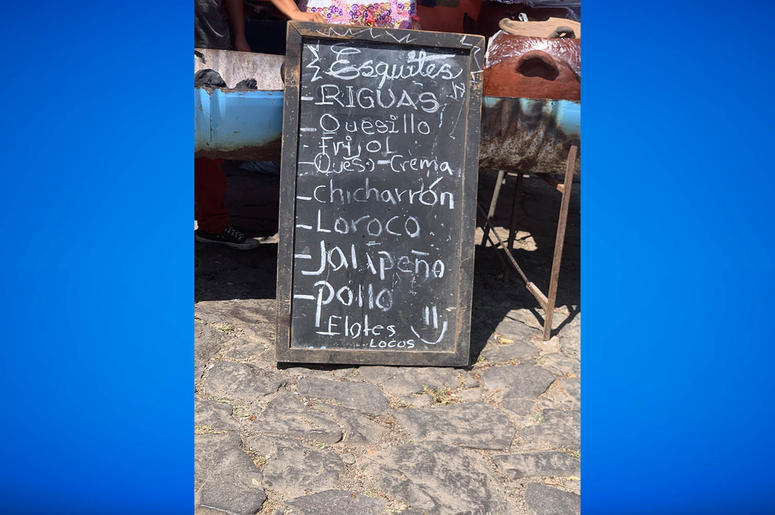 Esquites
- RIGUAS
- Quesillo
Frijol
- Queso-Crema
- Chicharrón
- Loroco
- Jalapeño
- Pollo
Elotes
Locos